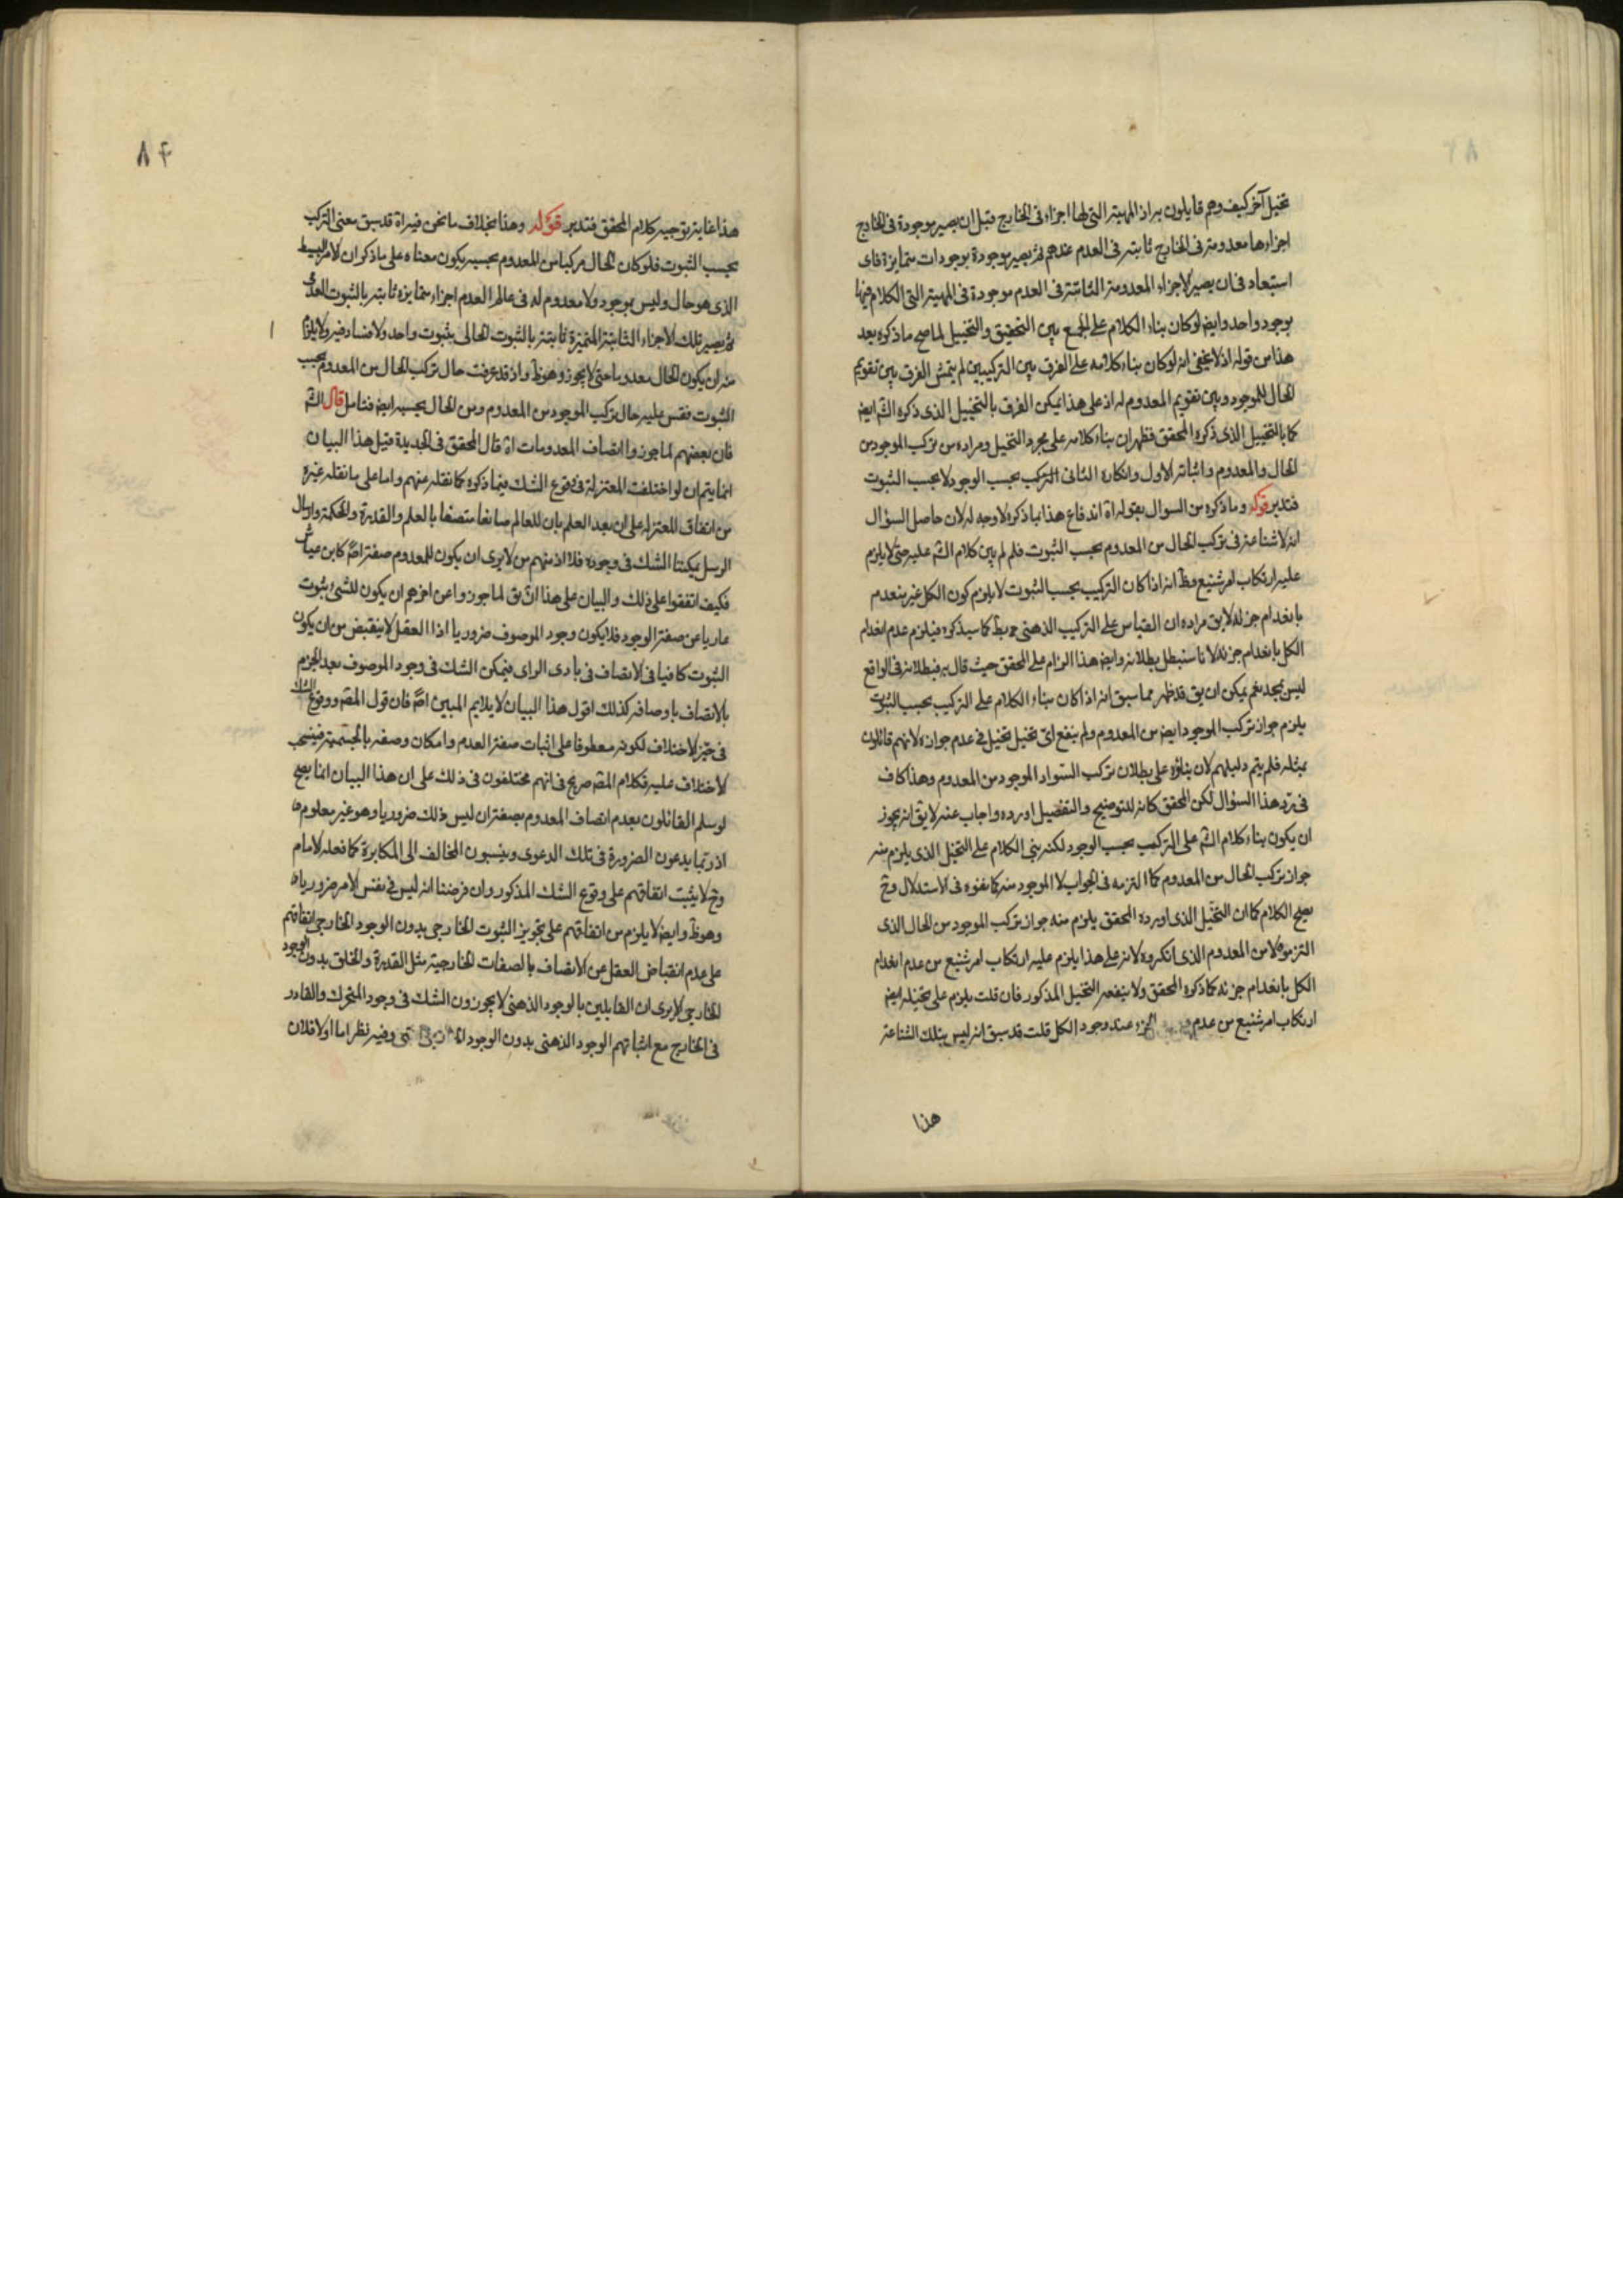 تخيل آخر كيف وهم قايلون بر اذ المهية التى لها اجزاء فى الخارج قبل ان يصير موجودة فى الخارج
اجزاءها معدومة فى الخارج ثابتة فى العدم عندهم ثم يصير موجودة بوجودات متمايزة فاى
استبعاد فى ان يصير الاجزاء المعدومة الثابتة فى العدم موجودة فى المهية التى الكلام فيها
بوجود واحد وايض لو كان بناء الكلام على الجمع بين التحقيق والتخييل لما صح ما ذكره بعد
هذا من قوله اذ لا يخفى انه لو كان بناء كلامه على الفرق بين التركيبين لم يتمش الفرق بين تقويم
الحال للموجود وبين تقويم المعدوم له اذ على هذا يمكن الفرق بالتخييل الذى ذكره الش ايض
كما بالتخييل الذى ذكره المحقق فظهر ان بناء كلامه على مجرد التخيل ومراده من تركب الموجود من
الحال والمعدوم واثباته الاول وانكاره الثانى التركب بحسب الوجود لا بحسب الثبوت
فتدبر قوله وما ذكره من السوال بقوله اه اندفاع هذا بما ذكره لا وجه له لان حاصل السؤال
انه لا شناعة فى تركب الحال من المعدوم بحسب الثبوت فلم لم يبن كلام الش عليه حتى لا يلزم
عليه ارتكاب امر شنيع وظ انه اذا كان التركيب بحسب الثبوت لا يلزم كون الكل غير منعدم
بانعدام جزئه لا يق مراده ان القياس على التركيب الذهنى ح بط كما سيذكره فيلزم عدم انعدام
الكل بانعدام جزئه لانا سنبطل بطلانه وايض هذا الزام على المحقق حيث قال به فبطلانه فى الواقع
ليس بمجد نعم يمكن ان يق قد ظهر مما سبق انه اذا كان بناء الكلام على التركيب بحسب الثبوت
يلزم جواز تركب الموجود ايض من المعدوم ولم ينفع اى تخيل تخيل فى عدم جوازه لانهم قائلون
بمثله فلم يتم دليلهم لان بناؤه على بطلان تركب السواد الموجود من المعدوم وهذا كاف
فى رد هذا السؤال لكن المحقق كانه للتوضيح والتفصيل اورده واجاب عنه لا يق انه يجوز
ان يكون بناء كلام الش على التركيب بحسب الوجود لكنه بنى الكلام على التخيل الذى يلزم منه
جواز تركب الحال من المعدوم كما التزمه فى الجواب لا الموجود منه كما نفوه فى الاستدلال وح
يصح الكلام كما ان التخيل الذى اورده المحقق يلزم منه جواز تركب الموجود من الحال الذى
التزموه لا من المعدوم الذى انكروه لانه على هذا يلزم عليه ارتكاب امر شنيع من عدم انعدام
الكل بانعدام جزئه كما ذكره المحقق ولا ينفعه التخيل المذكور فان قلت يلزم على تخيله ايض
ارتكاب امر شنيع من عدم الجزء عند وجود الكل قلت قد سبق انه ليس بتلك الشناعة
هذا
٨٤
هذا غاية توجيه كلام المحقق فتدبر قوله وهذا بخلاف ما نحن فيه اه قد سبق معنى التركب
بحسب الثبوت فلو كان الحال مركبا من المعدوم بحسبه يكون معناه على ما ذكر ان الامر البسيط
الذى هو حال وليس بموجود ولا معدوم له فى عالم العدم اجزاء متمايزه ثابتة بالثبوت العدمى
ثم يصير تلك الاجزاء الثابتة المتميزة ثابتة بالثبوت الحالى بثبوت واحد ولا فساد فيه ولا يلزم
منه ان يكون الحال معدوما حتى لا يجوز وهو ظ واذ قد عرفت حال تركب الحال من المعدوم بحسب
الثبوت فقس عليه حال تركب الموجود من المعدوم ومن الحال بحسبه ايض فتامل قال الش
فان بعضهم لما جوزوا اتصاف المعدومات اه قال المحقق فى الجديدة قيل هذا البيان
انما يتم ان لو اختلفت المعتزلة فى وقوع الشك فيما ذكره كما نقله عنهم واما على ما نقله غيره
من اتفاق المعتزلة على ان بعد العلم بان للعالم صانعا متصفا بالعلم والقدرة والحكمة وارسال
الرسل يمكننا الشك فى وجوده فلا اذ منهم من لا يرى ان يكون للمعدوم صفة اصلا كابن عياش
فكيف اتفقوا على ذلك والبيان على هذا ان يق لما جوزوا عن اخرهم ان يكون للشئ ثبوت
عاريا عن صفة الوجود فلا يكون وجود الموصوف ضروريا اذ العقل لا ينقبض من ان يكون
الثبوت كافيا فى الاتصاف فى بادى الراى فيتمكن الشك فى وجود الموصوف بعد الجزم
بالاتصاف باوصافه كذلك اقول هذا البيان لا يلايم المبين اصلا فان قول المص ووقوع الشك
فى حيز الاختلاف لكونه معطوفا على اثبات صفة العدم وامكان وصفه بالجسمية فينسحب
الاختلاف عليه فكلام المص صريح فى انهم مختلفون فى ذلك على ان هذا البيان انما يصح
لو سلم القائلون بعدم اتصاف المعدوم بصفة ان ليس ذلك ضروريا وهو غير معلوم
اذ ربما يدعون الضرورة فى تلك الدعوى وينسبون المخالف الى المكابرة كما فعله الامام
وح لا يثبت اتفاقهم على وقوع الشك المذكور وان فرضنا انه ليس فى نفس الامر ضروريا
وهو ظ وايض لا يلزم من اتفاقهم على تجويز الثبوت الخارجى بدون الوجود الخارجى اتفاقهم
على عدم انقباض العقل عن الاتصاف بالصفات الخارجية مثل القدرة والخلق بدون الوجود
الخارجى الا يرى ان القايلين بالوجود الذهنى لا يجوزون الشك فى وجود المتحرك والقادر
فى الخارج مع اثباتهم الوجود الذهنى بدون الوجود الخارجى انتهى وفيه نظر اما اولا فلان